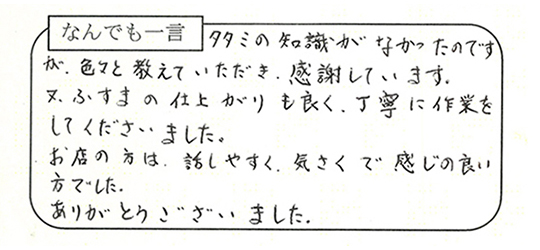 なんでも一言
タタミの知識がなかったのです
が、色々と教えていただき、感謝しています。
又、ふすまの仕上がりも良く、丁寧に作業を
してくださいました。
お店の方は、話しやすく、気さくで感じの良い
方でした。
ありがとうございました。